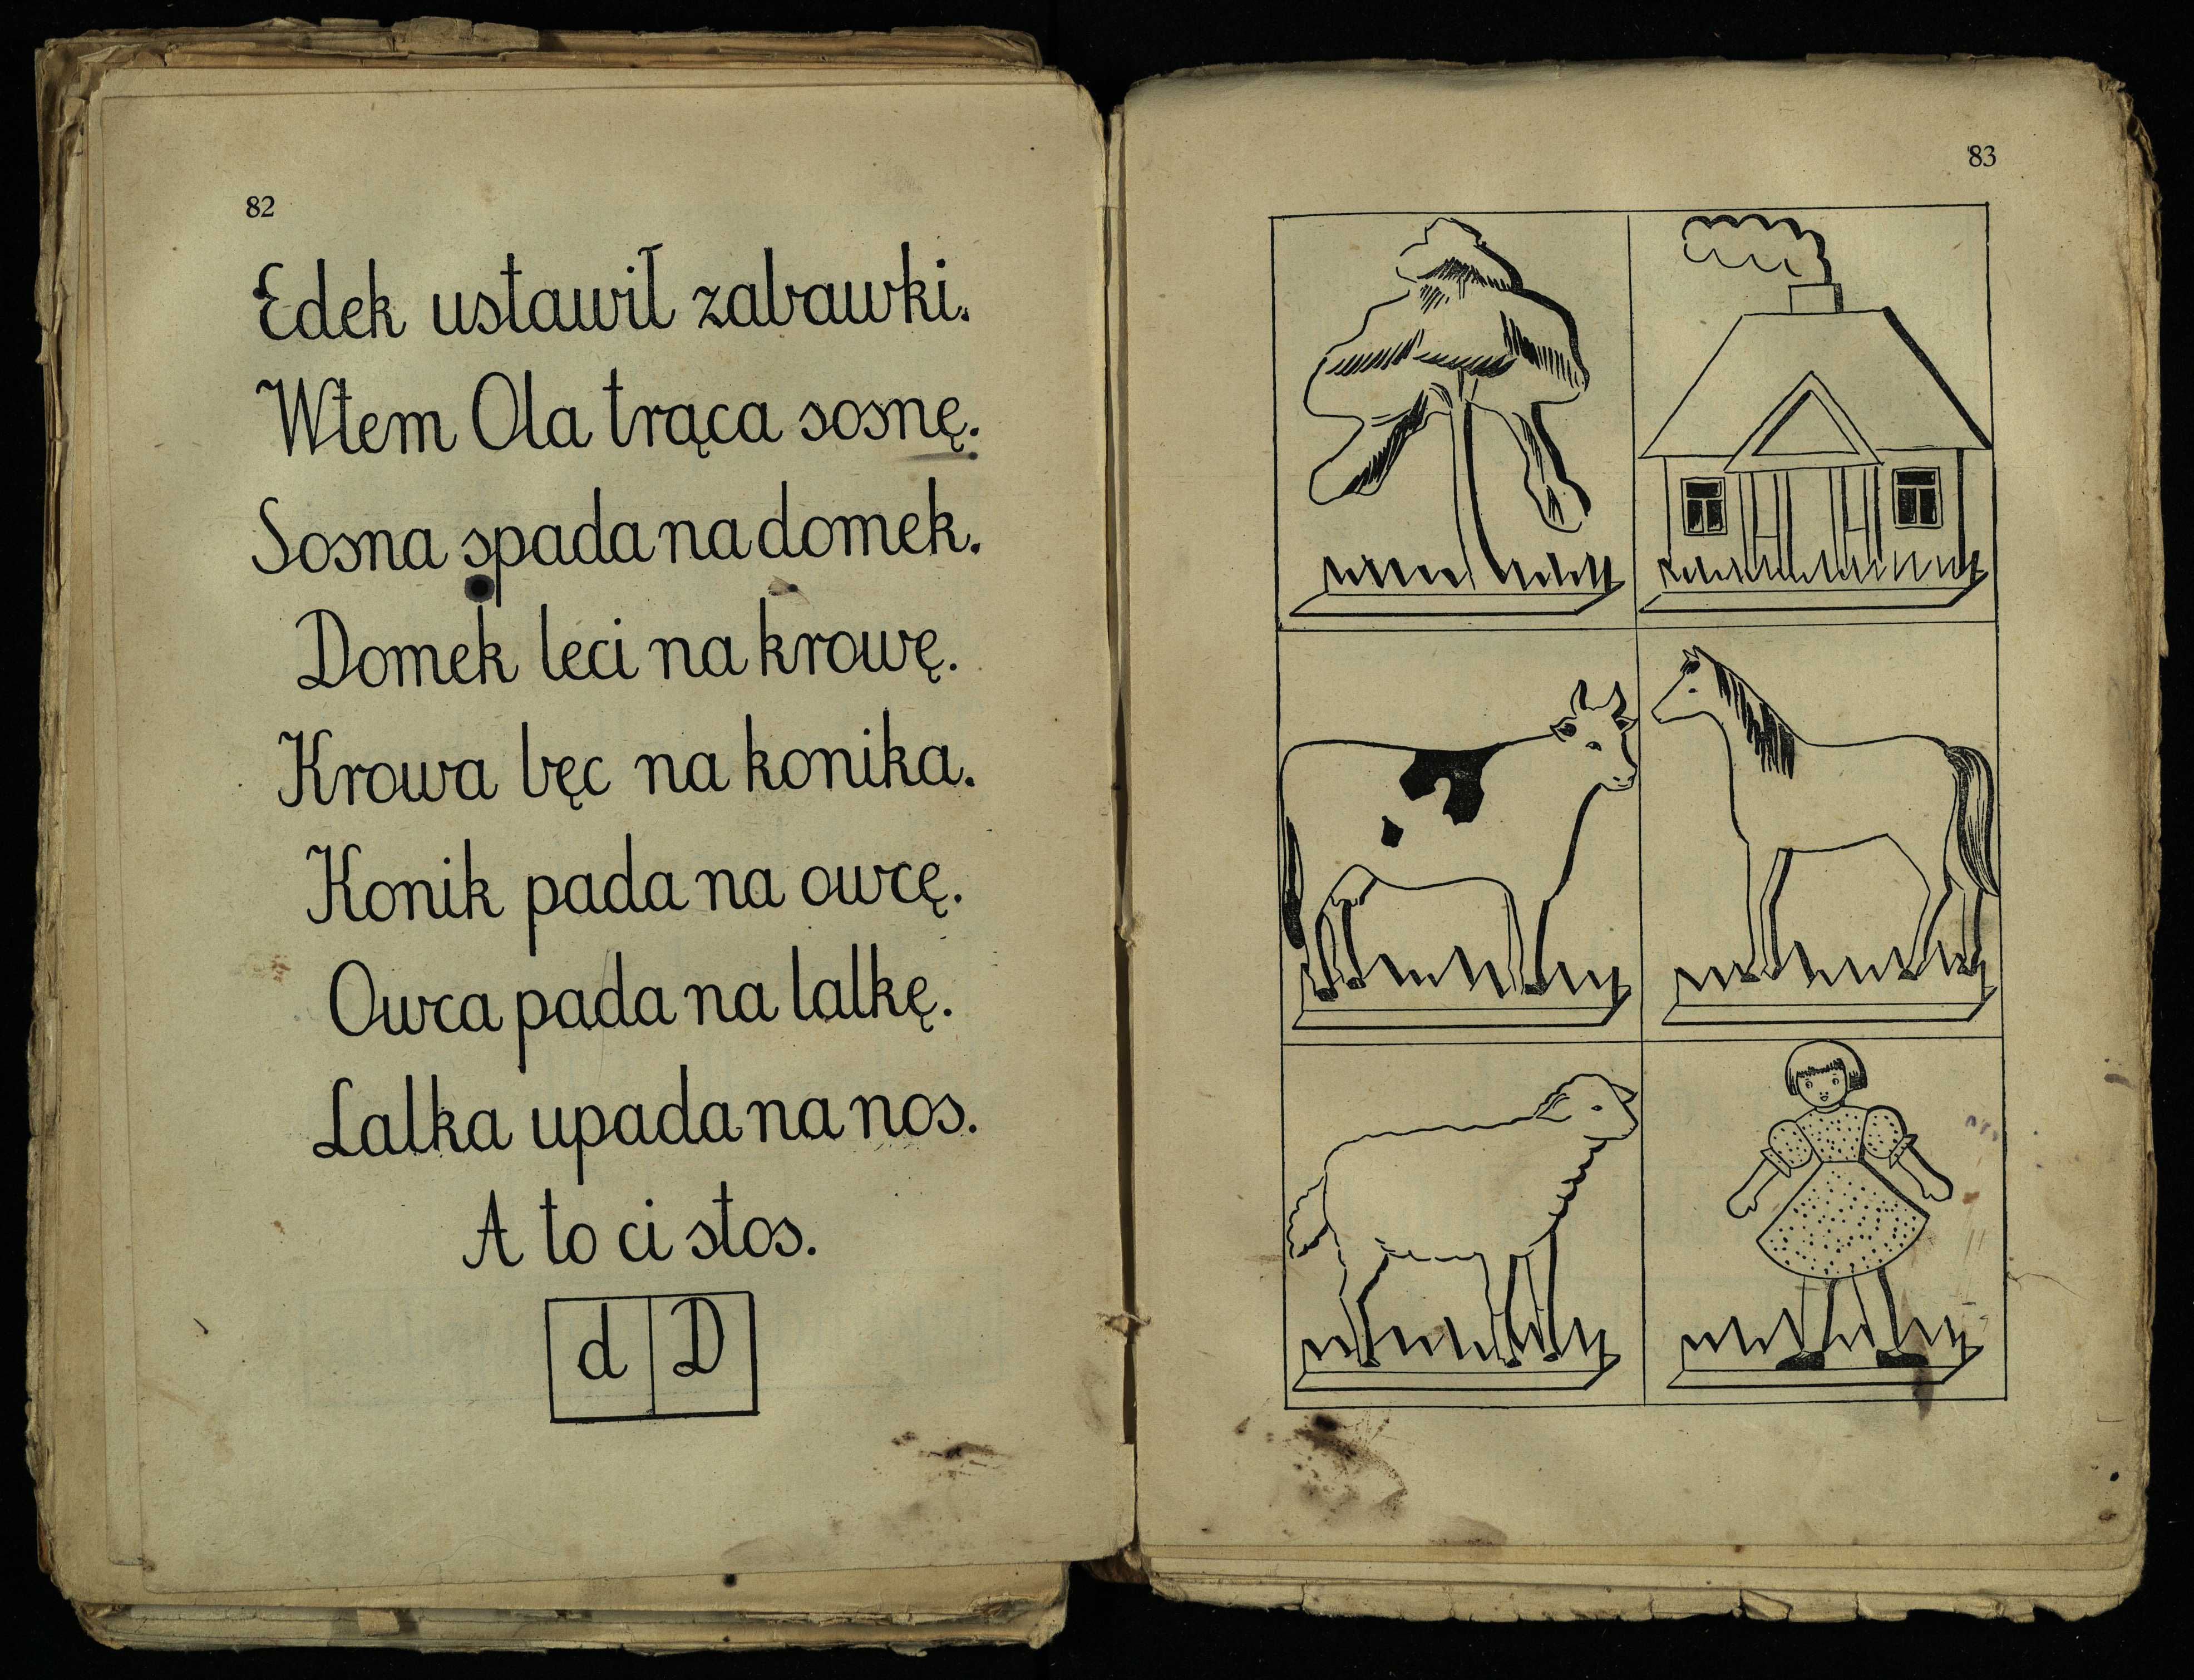 82
Edek ustawił zabawki.
Wtem Ola trąca sosnę.
Sosna spada na domek.
Domek leci na krowę.
Krowa bęc na konika.
Konik pada na owcę.
Owca pada na lalkę.
Lalka upada na nos.
A to ci stos.
d D
83